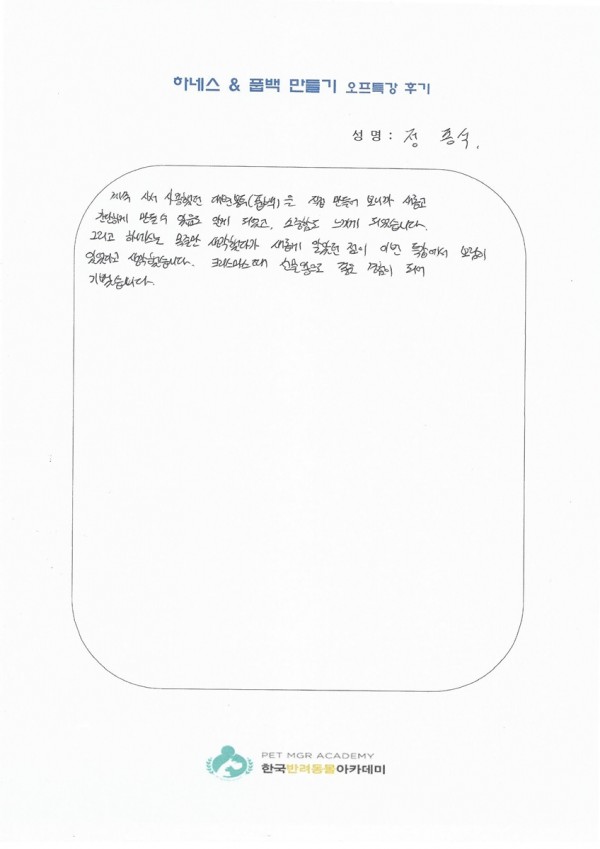 하네스 & 풉백 만들기 오프특강 후기
성 명 : 정
사서 사용했던 (풉백)은 직접 만들어 보니까 새롭고
간단하게 만들 수 있음도 알게 되었고, 소중함도 느끼게 되었습니다.
그리고 하네스는 생각했다가 새롭게 알았던 점이 이번 특강에서 보람이
있었다고 생각했습니다. 크리스마스때 선물용으로 좋은 경험이 되어
기뻤습니다.
PET MGR ACADEMY
한국반려동물아카데미